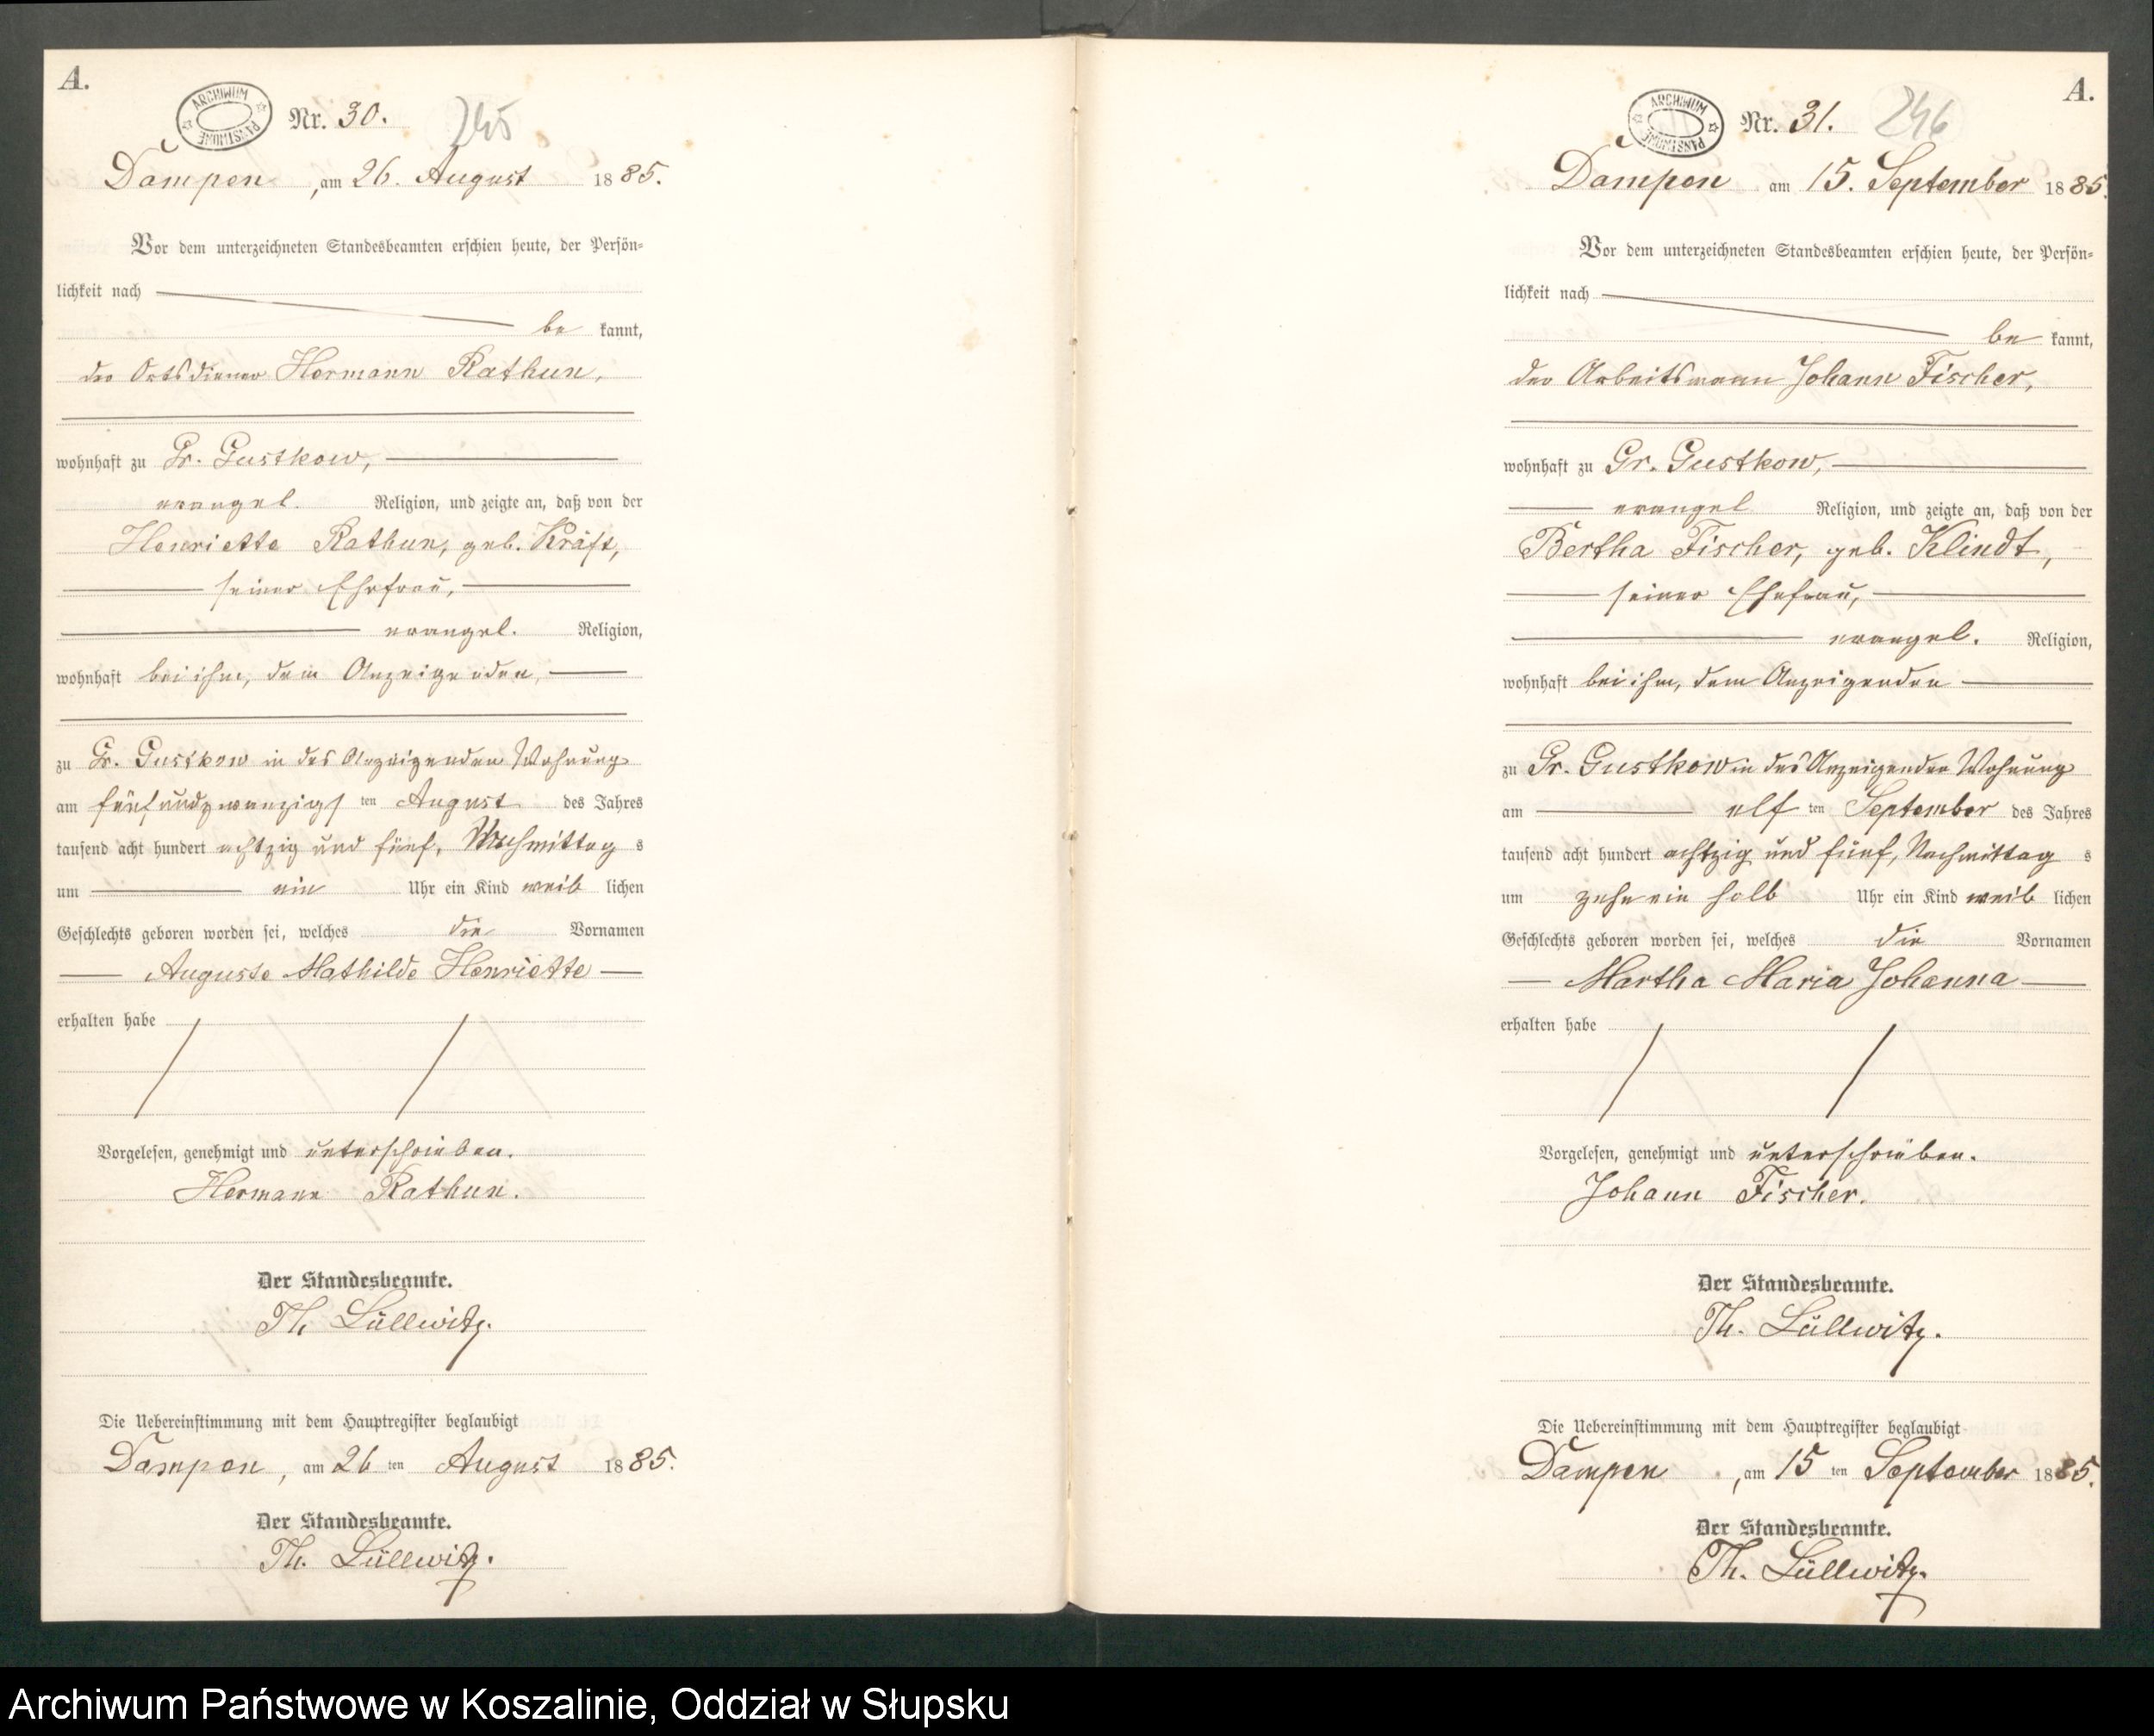 A.
ARCHIWUM PAŃSTWOWE
Nr. 30.
245
Dampen, am 26. August 1885.
Vor dem unterzeichneten Standesbeamten erschien heute, der Persön-
lichkeit nach
be kannt,
der Ortsdiener Hermann Rathun,
wohnhaft zu Gr. Gustkow,
evangel. Religion, und zeigte an, daß von der
Henriette Rathun, geb. Kräft,
seiner Ehefrau,
evangel. Religion,
wohnhaft bei ihm, dem Anzeigenden,
zu Gr. Gustkow in des Anzeigenden Wohnung
am fünfundzwanzigs ten August des Jahres
tausend acht hundert achtzig und fünf, Nachmittag s
um ein Uhr ein Kind weib lichen
Geschlechts geboren worden sei, welches die Vornamen
Auguste Mathilde Henriette
erhalten habe
Vorgelesen, genehmigt und unterschrieben.
Hermann Rathun.
Der Standesbeamte.
Th. Lüllwitz.
Die Uebereinstimmung mit dem Hauptregister beglaubigt
Dampen, am 26 ten August 1885.
Der Standesbeamte.
Th. Lüllwitz.
A.
ARCHIWUM PAŃSTWOWE
Nr. 31.
246
Dampen am 15. September 1885.
Vor dem unterzeichneten Standesbeamten erschien heute, der Persön-
lichkeit nach
be kannt,
der Arbeitsmann Johann Fischer,
wohnhaft zu Gr. Gustkow,
evangel Religion, und zeigte an, daß von der
Bertha Fischer, geb. Klindt,
seiner Ehefrau,
evangel. Religion,
wohnhaft bei ihm, dem Anzeigenden
zu Gr. Gustkow in des Anzeigenden Wohnung
am elf ten September des Jahres
tausend acht hundert achtzig und fünf, Nachmittag s
um zehn ein halb Uhr ein Kind weib lichen
Geschlechts geboren worden sei, welches die Vornamen
Martha Maria Johanna
erhalten habe
Vorgelesen, genehmigt und unterschrieben.
Johann Fischer.
Der Standesbeamte.
Th. Lüllwitz.
Die Uebereinstimmung mit dem Hauptregister beglaubigt
Dampen, am 15 ten September 1885.
Der Standesbeamte.
Th. Lüllwitz.
Archiwum Państwowe w Koszalinie, Oddział w Słupsku